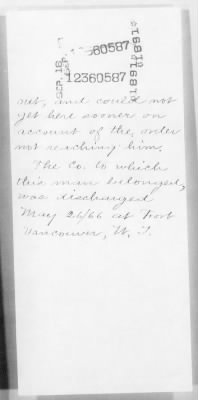 SEP. 18
60587
12360587
1881
ret, and could not
get here sooner on
account of the order
not reaching him.
The Co. to which
this man belonged,
was discharged
May 26/66 at Fort
Vancouver, W. T.